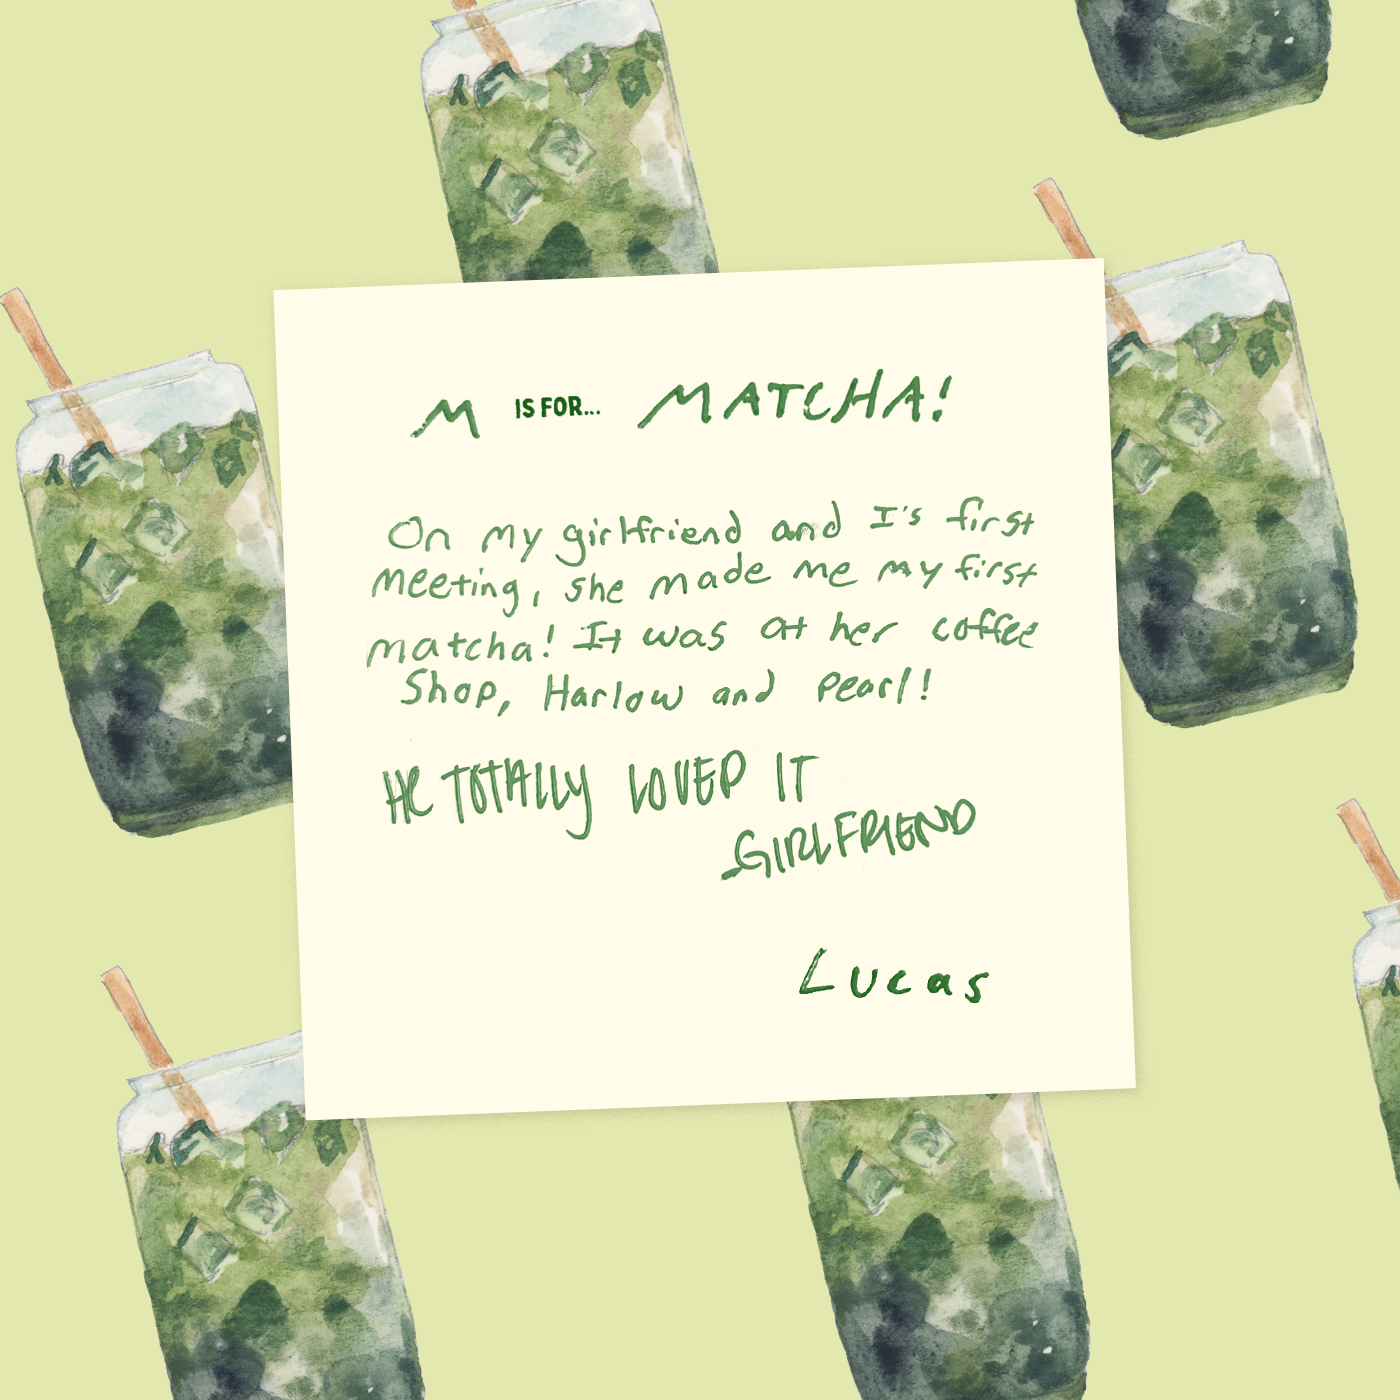 M IS FOR... MATCHA!
On my girlfriend and I's first
meeting, she made me my first
matcha! It was at her coffee
Shop, Harlow and Pearl!
HE TOTALLY LOVED IT
GIRLFRIEND
Lucas